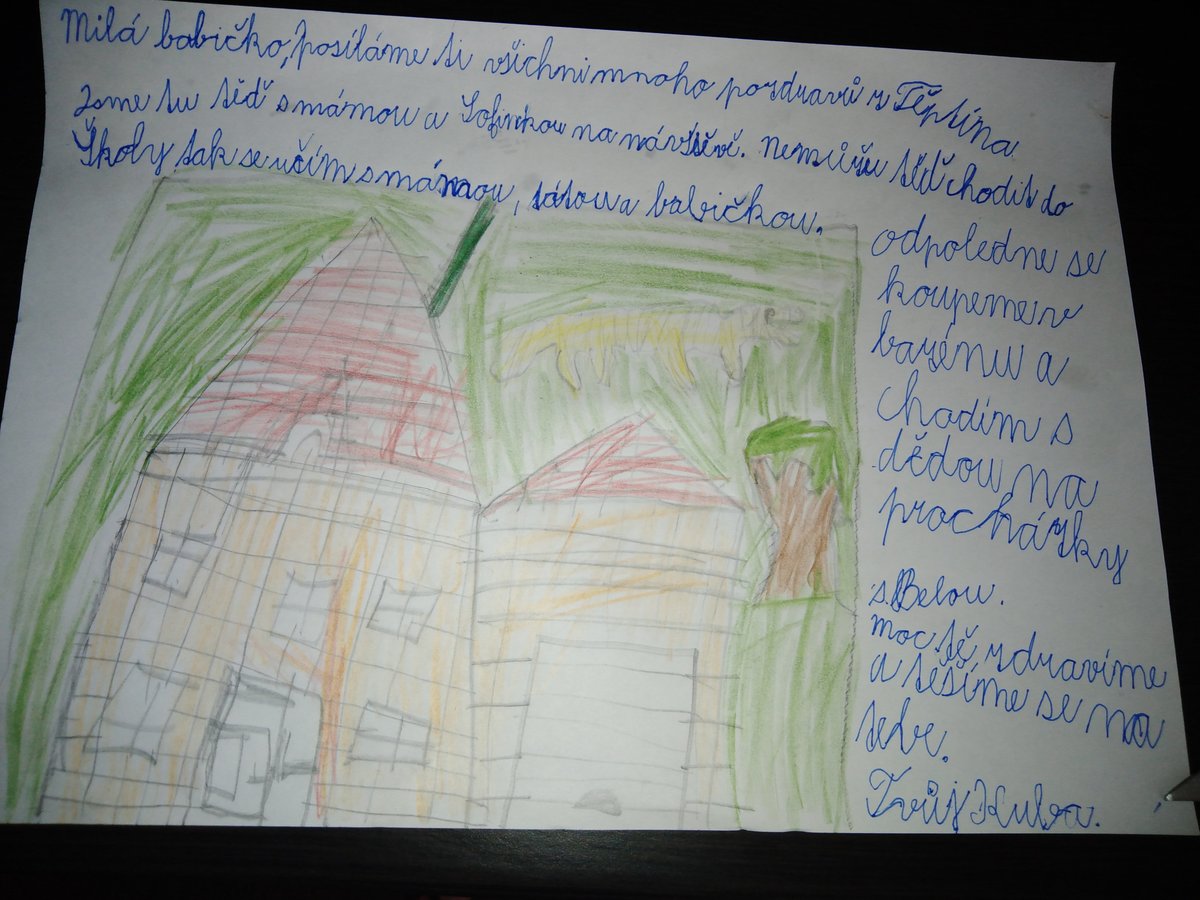 Milá babičko, posíláme ti všichni mnoho pozdravů z Těptína
Jsme tu teď s mámou a Sofinkou na návštěvě. Nemůžu teď chodit do
Školy tak se učím s mámou, tátou a babičkou.
odpoledne se
koupeme v
bazénu a
chodím s
dědou na
procházky
s Belou.
moc tě zdravíme
a těšíme se na
tebe.
Tvůj Kuba.